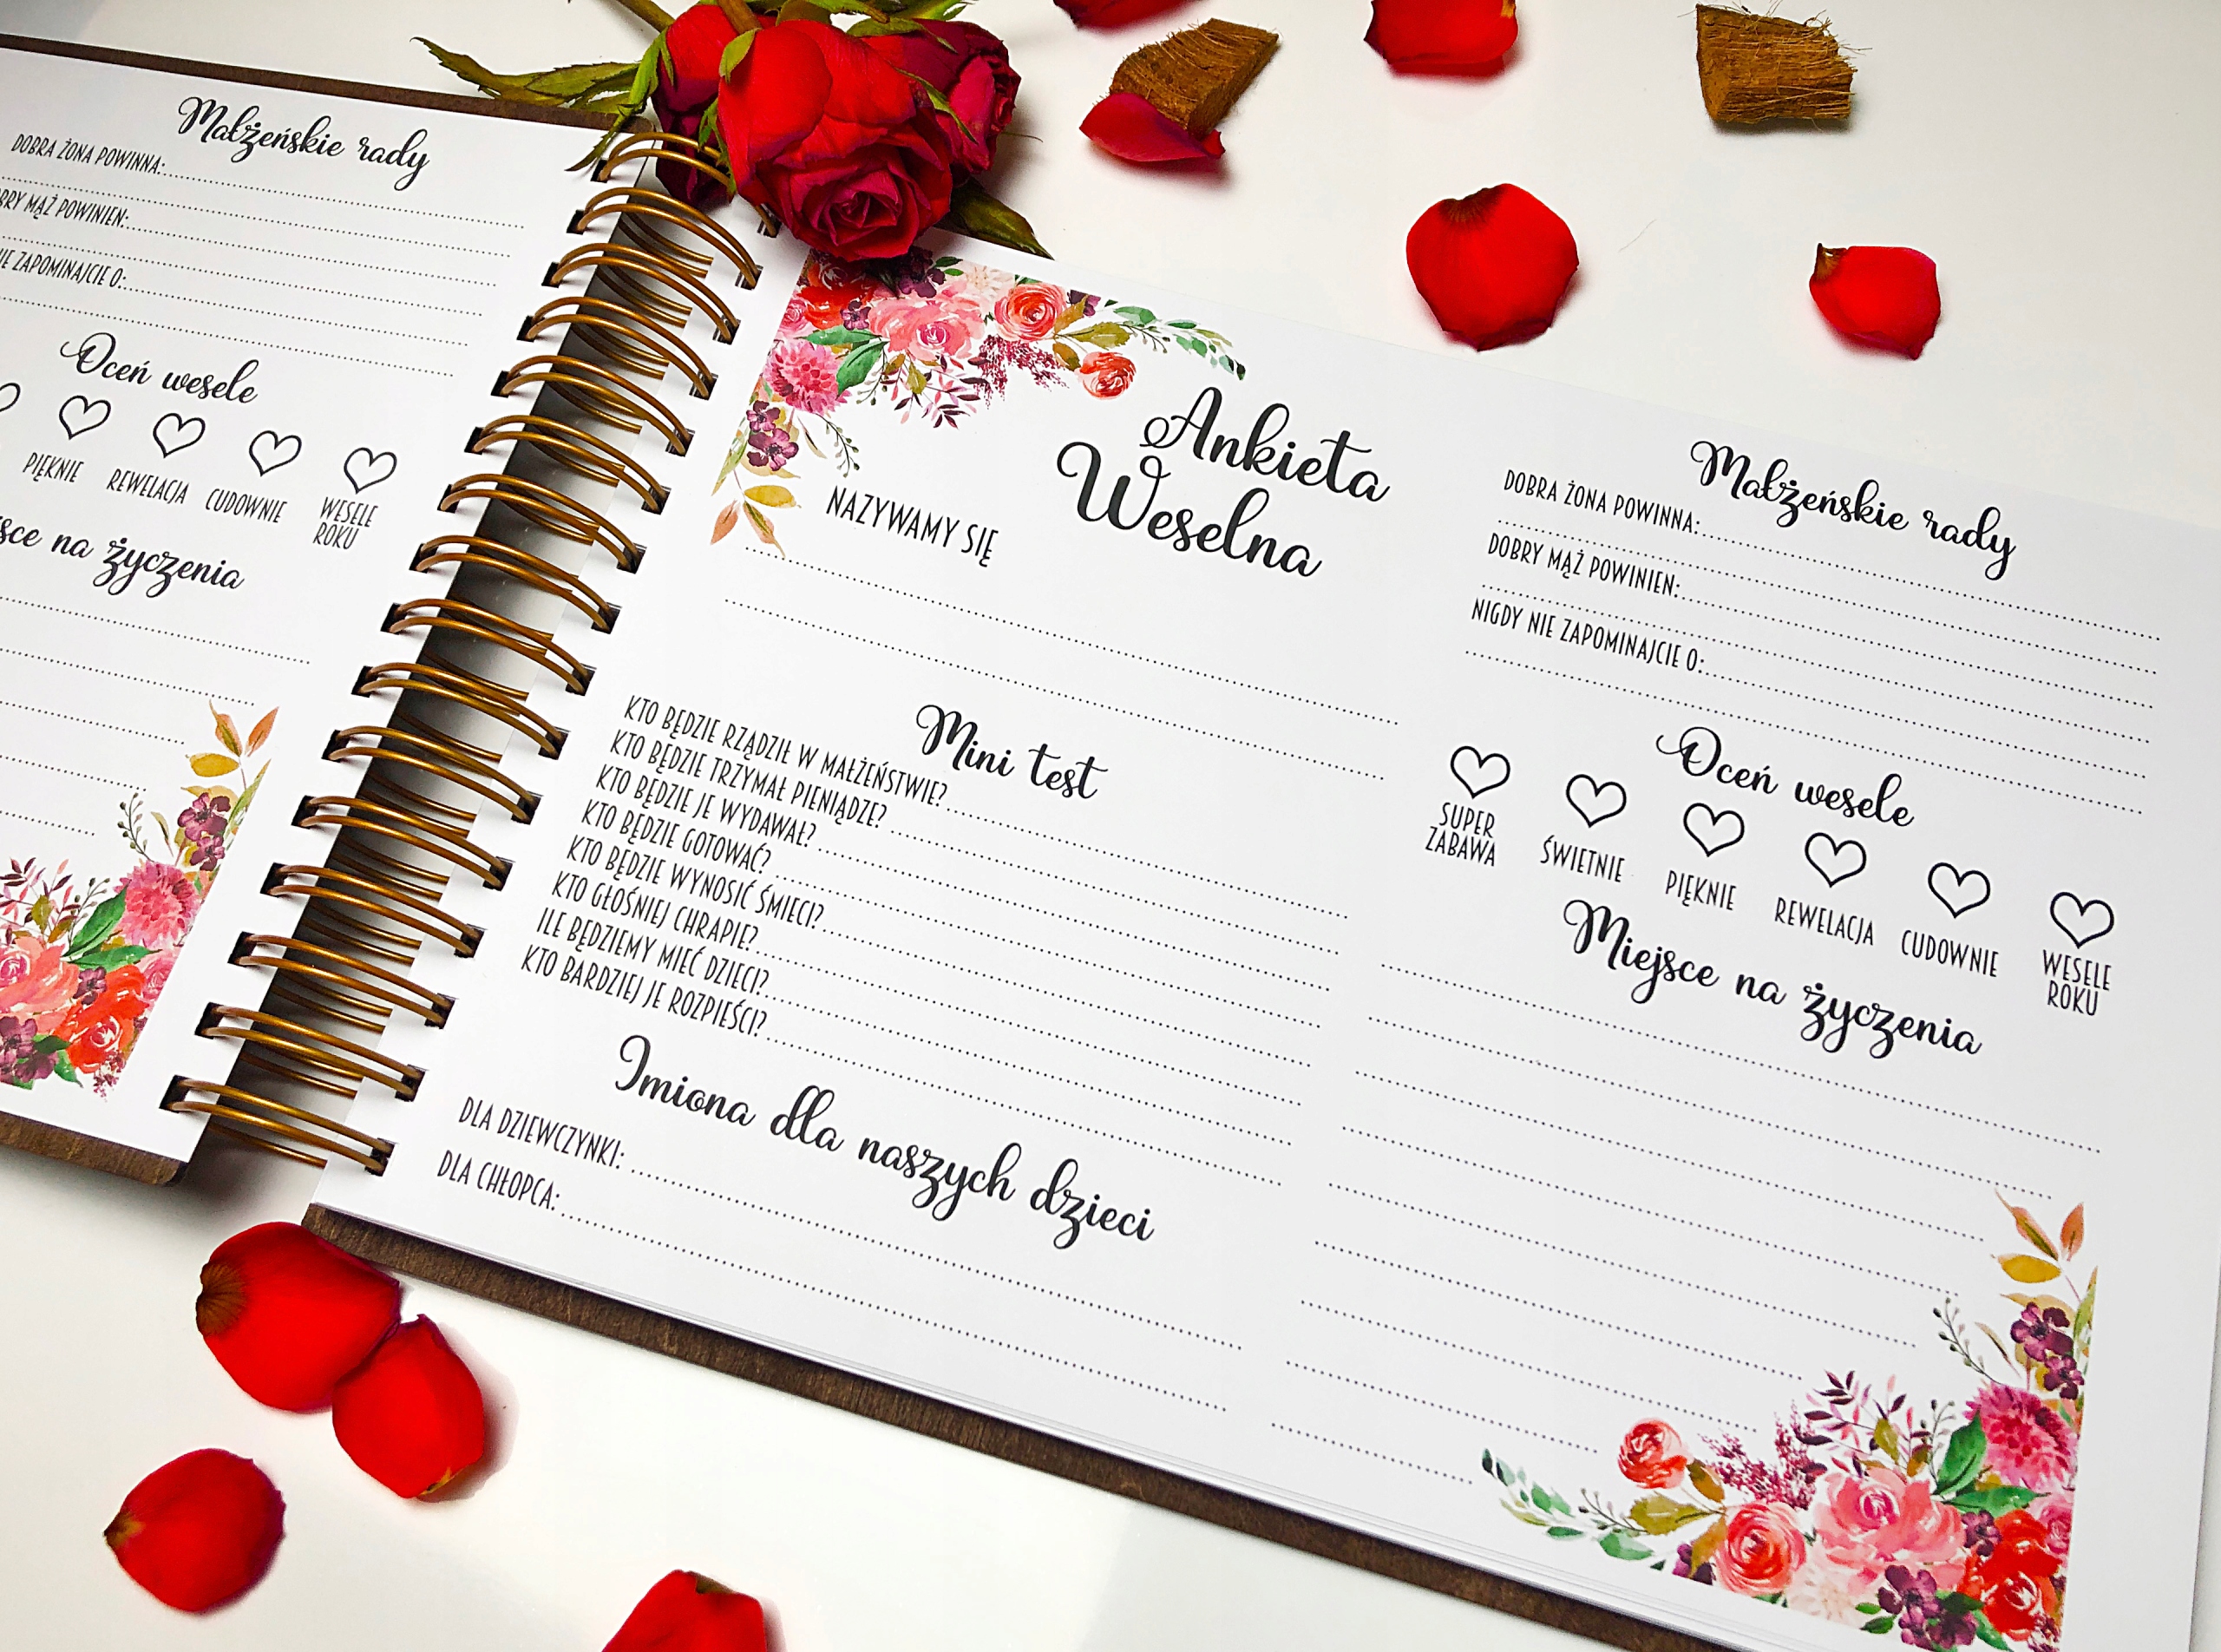 Małżeńskie rady
DOBRA ŻONA POWINNA:
MĄŻ POWINIEN:
ZAPOMINAJCIE O:
Oceń wesele
PIĘKNIE
REWELACJA
CUDOWNIE
WESELE
ROKU
na życzenia
Ankieta
Weselna
NAZYWAMY SIĘ
Mini test
KTO BĘDZIE RZĄDZIŁ W MAŁŻEŃSTWIE?
KTO BĘDZIE TRZYMAŁ PIENIĄDZE?
KTO BĘDZIE JE WYDAWAŁ?
KTO BĘDZIE GOTOWAĆ?
KTO BĘDZIE WYNOSIĆ ŚMIECI?
KTO GŁOŚNIEJ CHRAPIE?
ILE BĘDZIEMY MIEĆ DZIECI?
KTO BARDZIEJ JE ROZPIEŚCI?
Imiona dla naszych dzieci
DLA DZIEWCZYNKI:
DLA CHŁOPCA:
Małżeńskie rady
DOBRA ŻONA POWINNA:
DOBRY MĄŻ POWINIEN:
NIGDY NIE ZAPOMINAJCIE O:
Oceń wesele
SUPER
ZABAWA
ŚWIETNIE
PIĘKNIE
REWELACJA
CUDOWNIE
WESELE
ROKU
Miejsce na życzenia